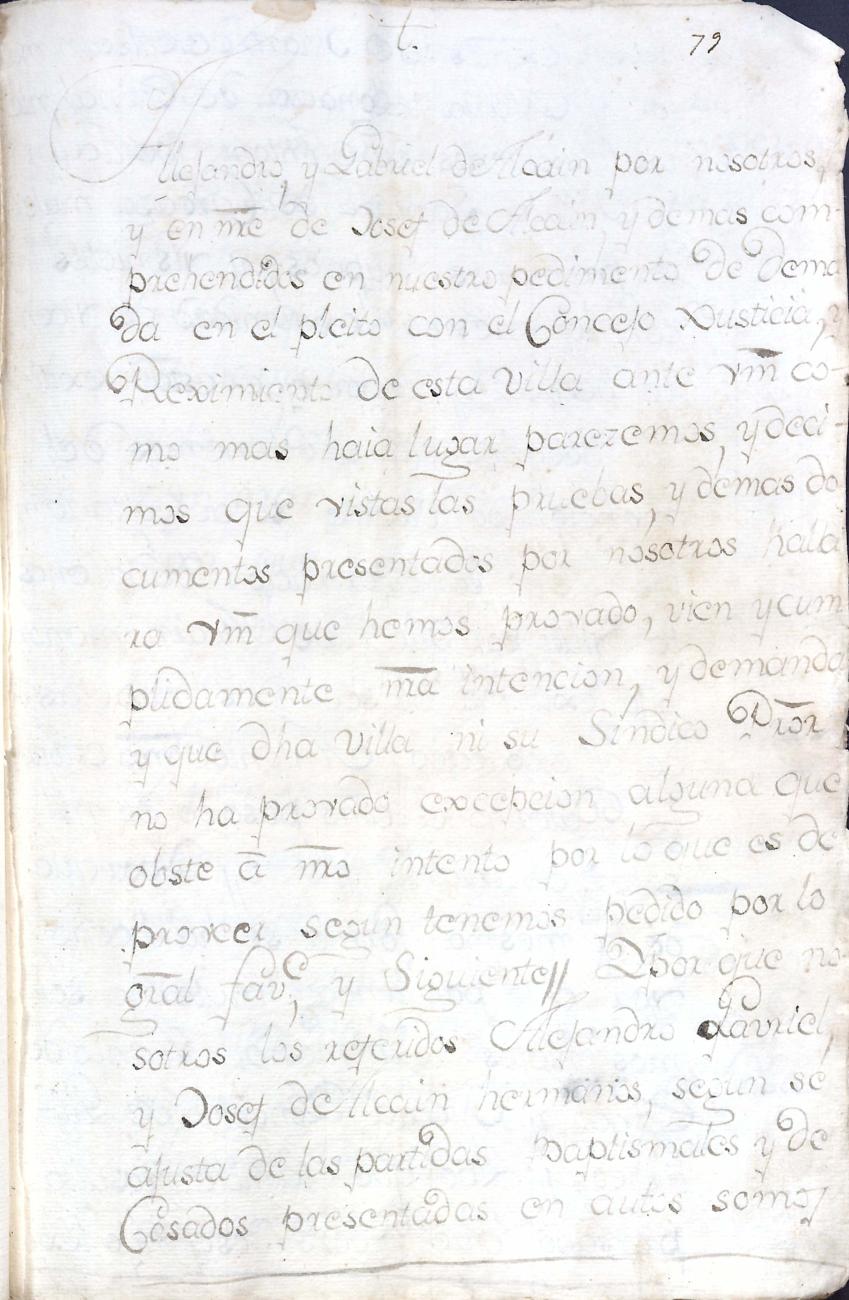 t.
79
Allejandro, y Gabriel de Alcain por nosotros,
y en nr̄e de Josef de Alcain, y demas com-
prehendidos en nuestro pedimento de dema
da en el pleito con el Concejo Justicia, y
Reximiento de esta Villa ante vm̄ co-
mo mas haia lugar parezemos, y deci-
mos que vistas las pruebas, y demas do
cumentos presentados por nosotros halla
ra vm̄ que hemos provado, vien y cum
plidamente nr̄a intencion, y demanda
y que dha villa ni su Sindico Pror̄
no ha provado excepcion alguna que
obste â nr̄o intento por lo que es de
proveer segun tenemos pedido por lo
gral̄ fav.e, y Siguiente// Y por que no
sotros los referidos Alejandro Gavriel,
y Josef de Alcain hermanos, segun se
ajusta de las partidas Baptismales y de
Casados presentadas en autos somos